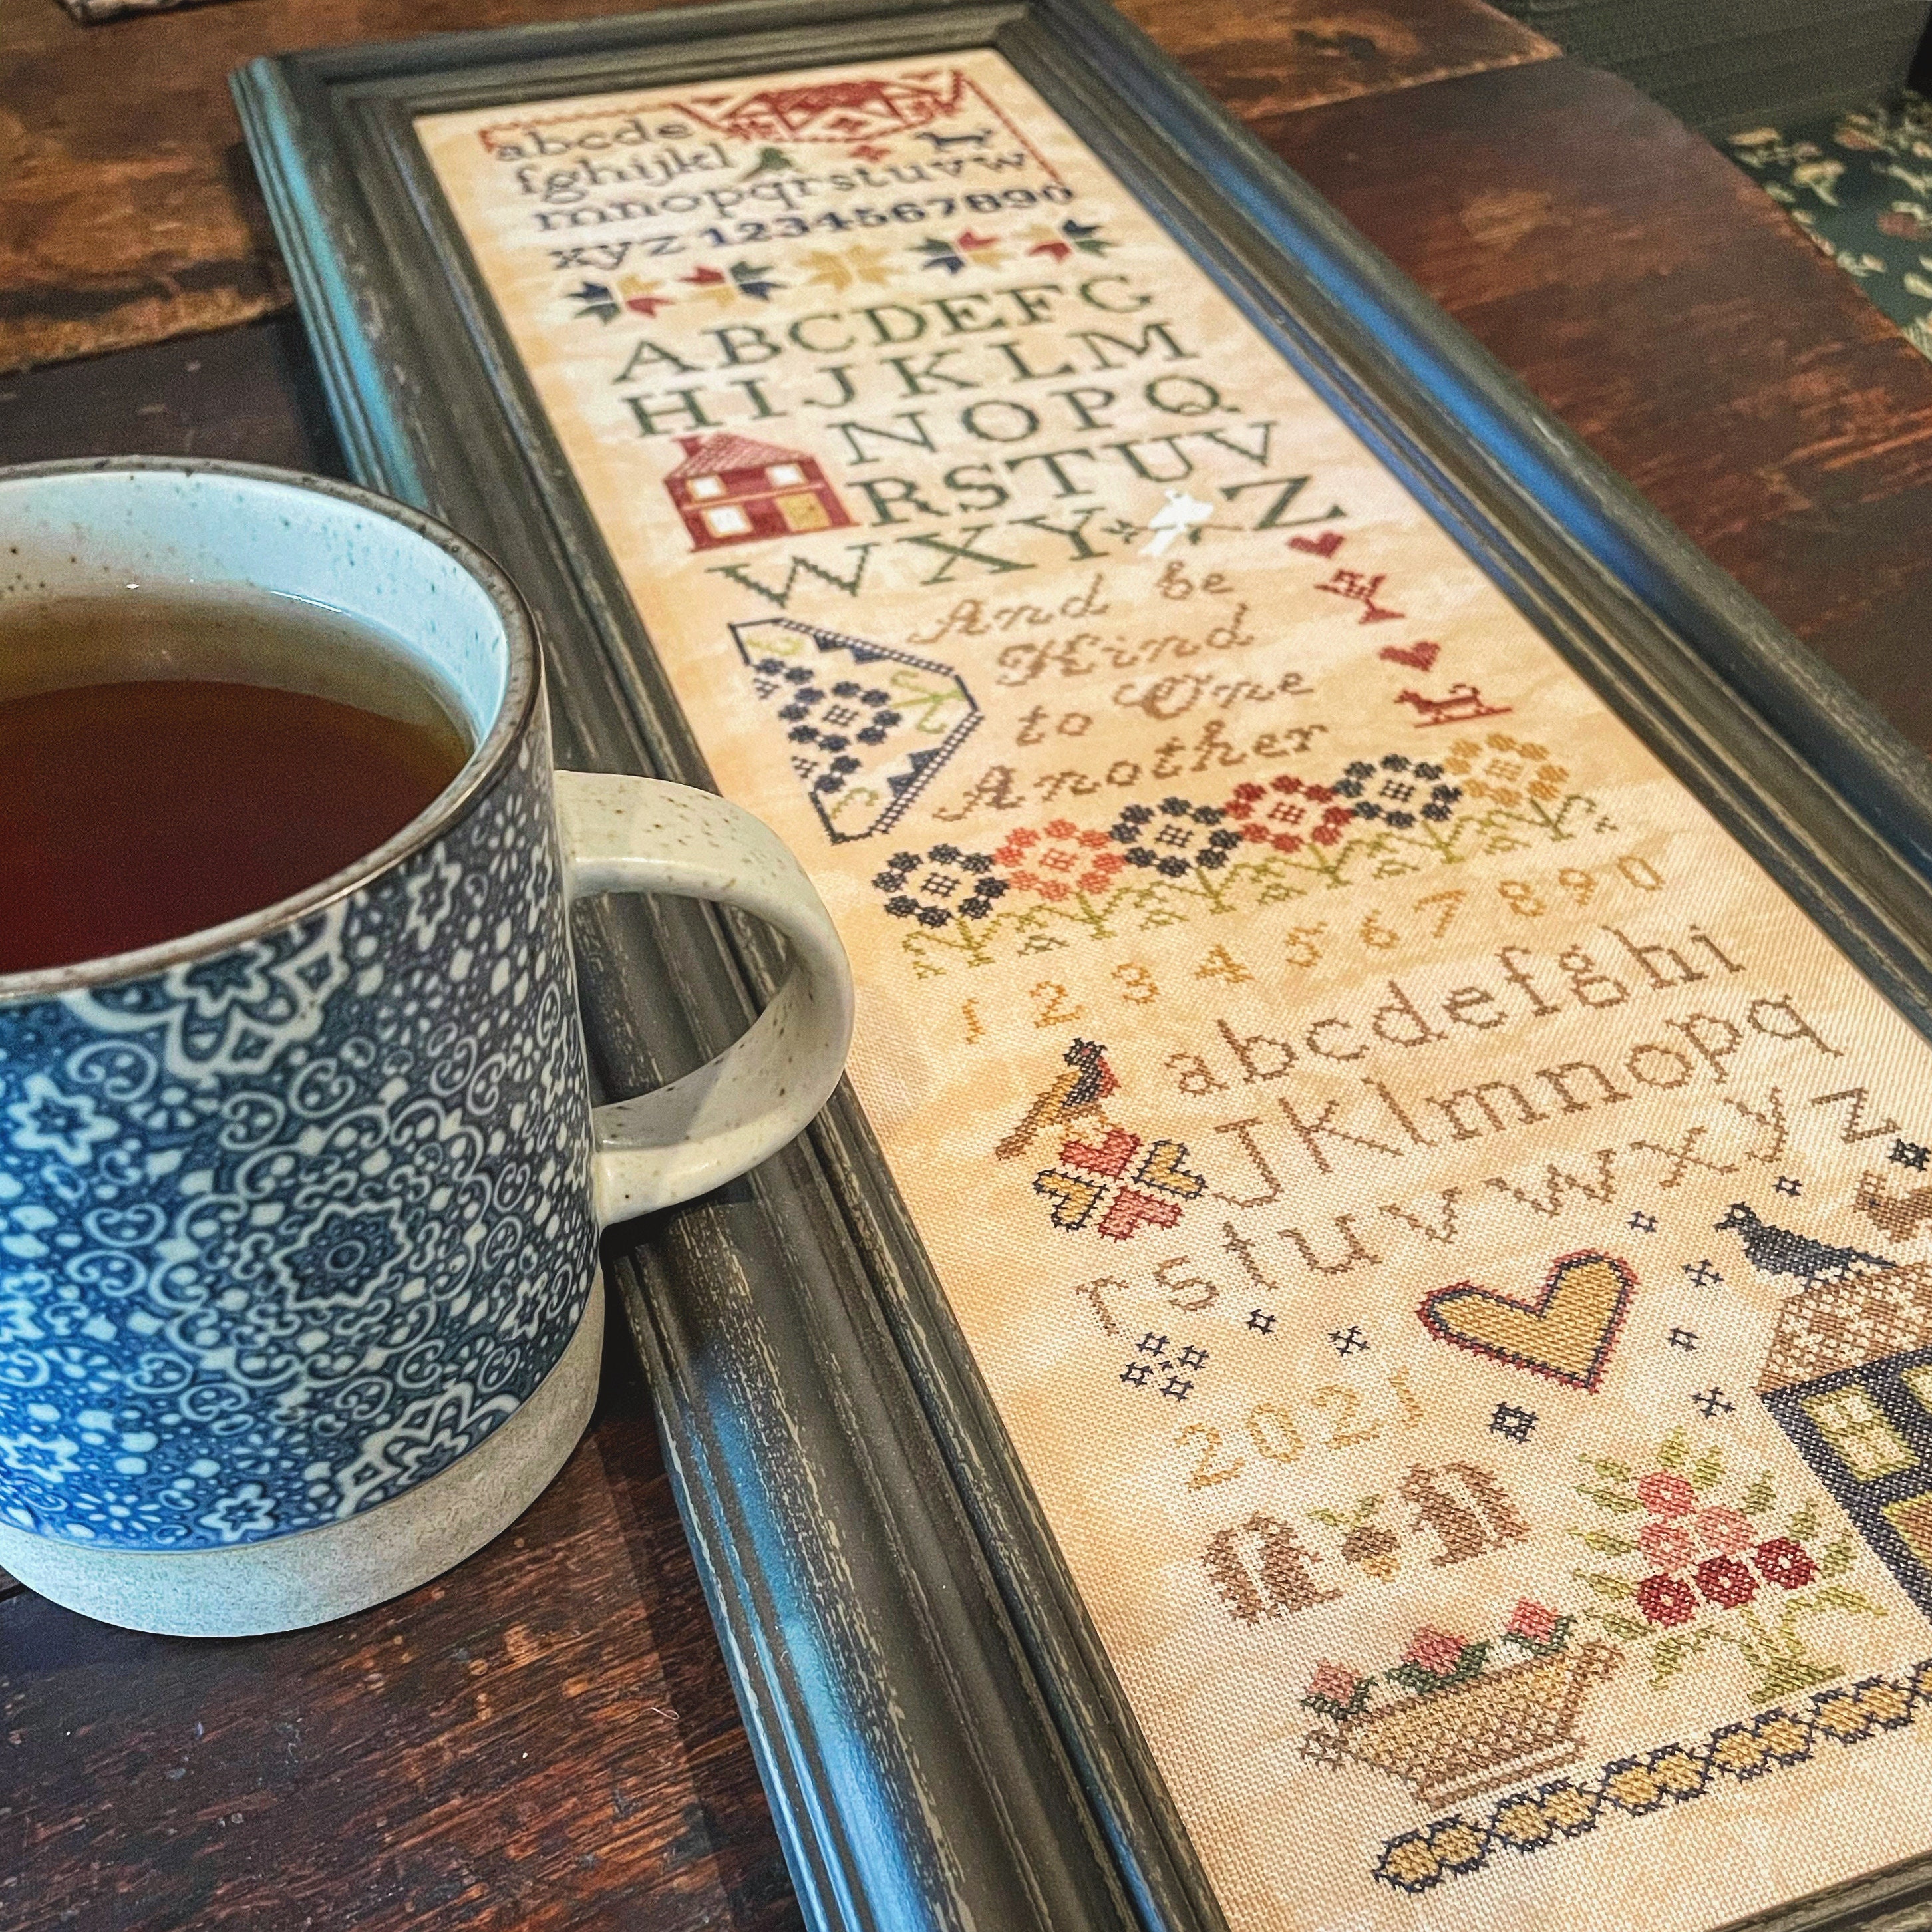 abcde
fghijkl
mnopqrstuvw
xyz 1234567890
ABCDEFG
HIJKLM
NOPQ
RSTUV
WXY Z
And be
Kind
to One
Another
1234567890
abcdefghi
Jklmnopq
rstuvwxyz
2021